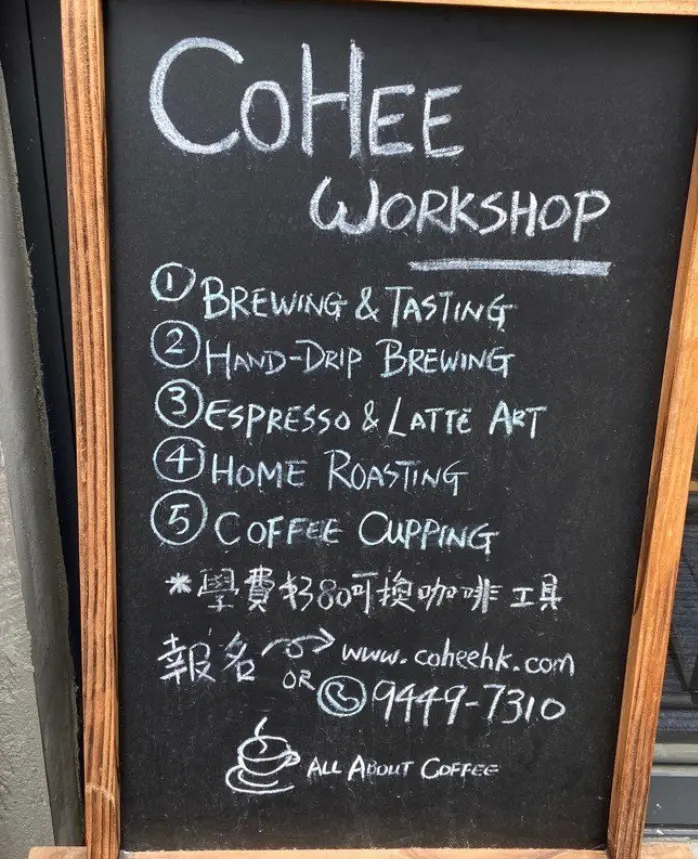 COHEE
WORKSHOP
① BREWING & TASTING
② HAND-DRIP BREWING
③ ESPRESSO & LATTE ART
④ HOME ROASTING
⑤ COFFEE CUPPING
*學費$380可換咖啡工具
報名 → www.coheehk.com
OR 9449-7310
ALL ABOUT COFFEE